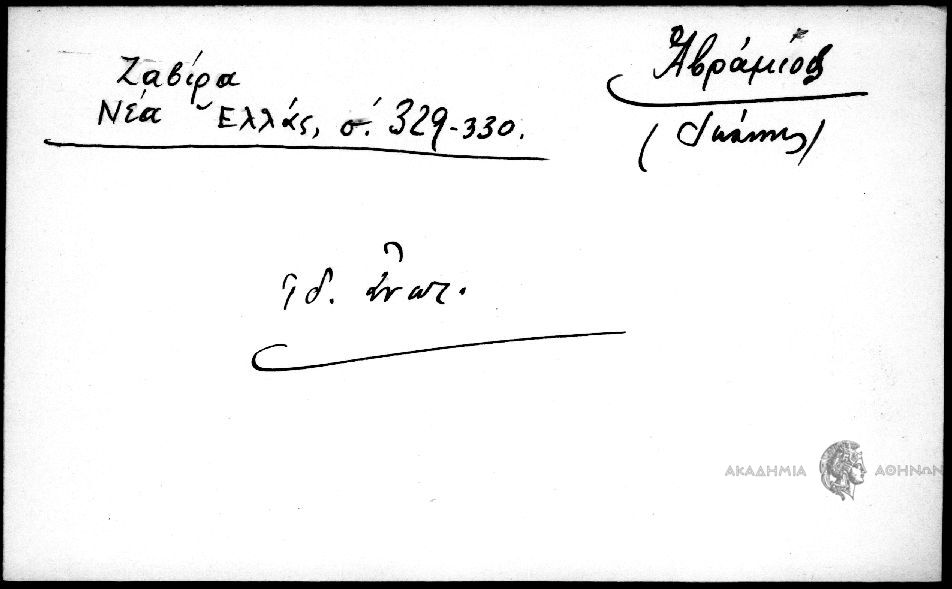 Ζαβίρα
Νέα Ἑλλάς, σ. 329-330.
Ἀβράμιος
(Ἰωάννης)
ἰδ.
ΑΚΑΔΗΜΙΑ ΑΘΗΝΩΝ